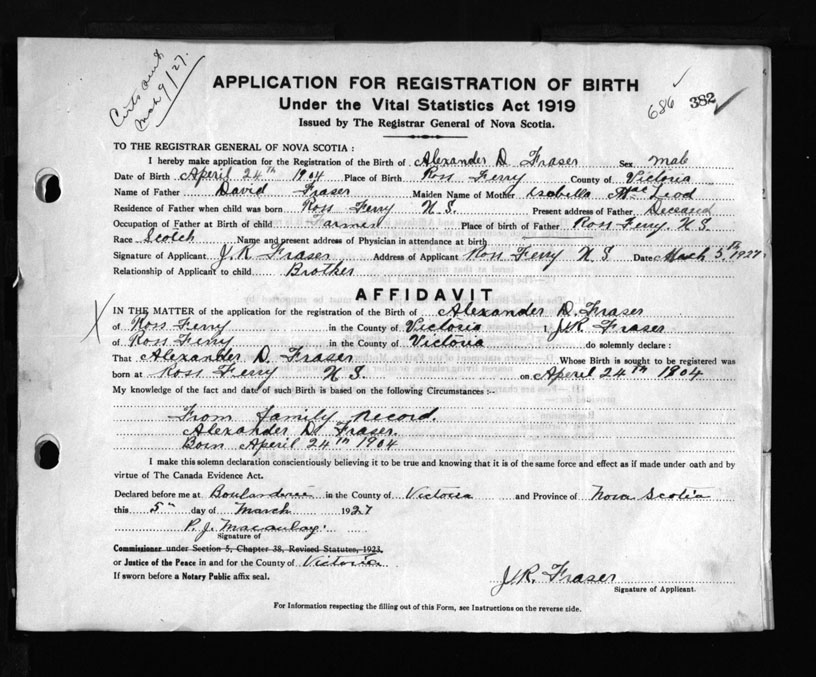 Certs sent
Mar 9/27.
APPLICATION FOR REGISTRATION OF BIRTH
Under the Vital Statistics Act 1919
686 382
Issued by The Registrar General of Nova Scotia.
TO THE REGISTRAR GENERAL OF NOVA SCOTIA :
I hereby make application for the Registration of the Birth of Alexander D Fraser Sex male
Date of Birth Aperil 24th 1904 Place of Birth Ross Ferry County of Victoria
Name of Father David Fraser Maiden Name of Mother Isabella MacLeod
Residence of Father when child was born Ross Ferry N S. Present address of Father Deceasd
Occupation of Father at Birth of child Farmer Place of birth of Father Ross Ferry. N S.
Race Scotch Name and present address of Physician in attendance at birth
Signature of Applicant J.R Fraser Address of Applicant Ross Ferry N S Date March 5th 1927
Relationship of Applicant to child Brother
AFFIDAVIT
IN THE MATTER of the application for the registration of the Birth of Alexander D. Fraser
of Ross Ferry in the County of Victoria I, J.R. Fraser
of Ross Ferry in the County of Victoria do solemnly declare :
That Alexander D. Fraser Whose Birth is sought to be registered was
born at Ross Ferry N S. on Aperil 24th 1904
My knowledge of the fact and date of such Birth is based on the following Circumstances :-
From family record.
Alexander D. Fraser.
Born Aperil 24th 1904
I make this solemn declaration conscientiously believing it to be true and knowing that it is of the same force and effect as if made under oath and by
virtue of The Canada Evidence Act.
Declared before me at Boularderie in the County of Victoria and Province of Nova Scotia
this 5th day of March 1927
P. J. Macaulay.
Signature of
Commissioner under Section 5, Chapter 38, Revised Statutes, 1923,
or Justice of the Peace in and for the County of Victoria
If sworn before a Notary Public affix seal.
J.R. Fraser
Signature of Applicant.
For Information respecting the filling out of this Form, see Instructions on the reverse side.